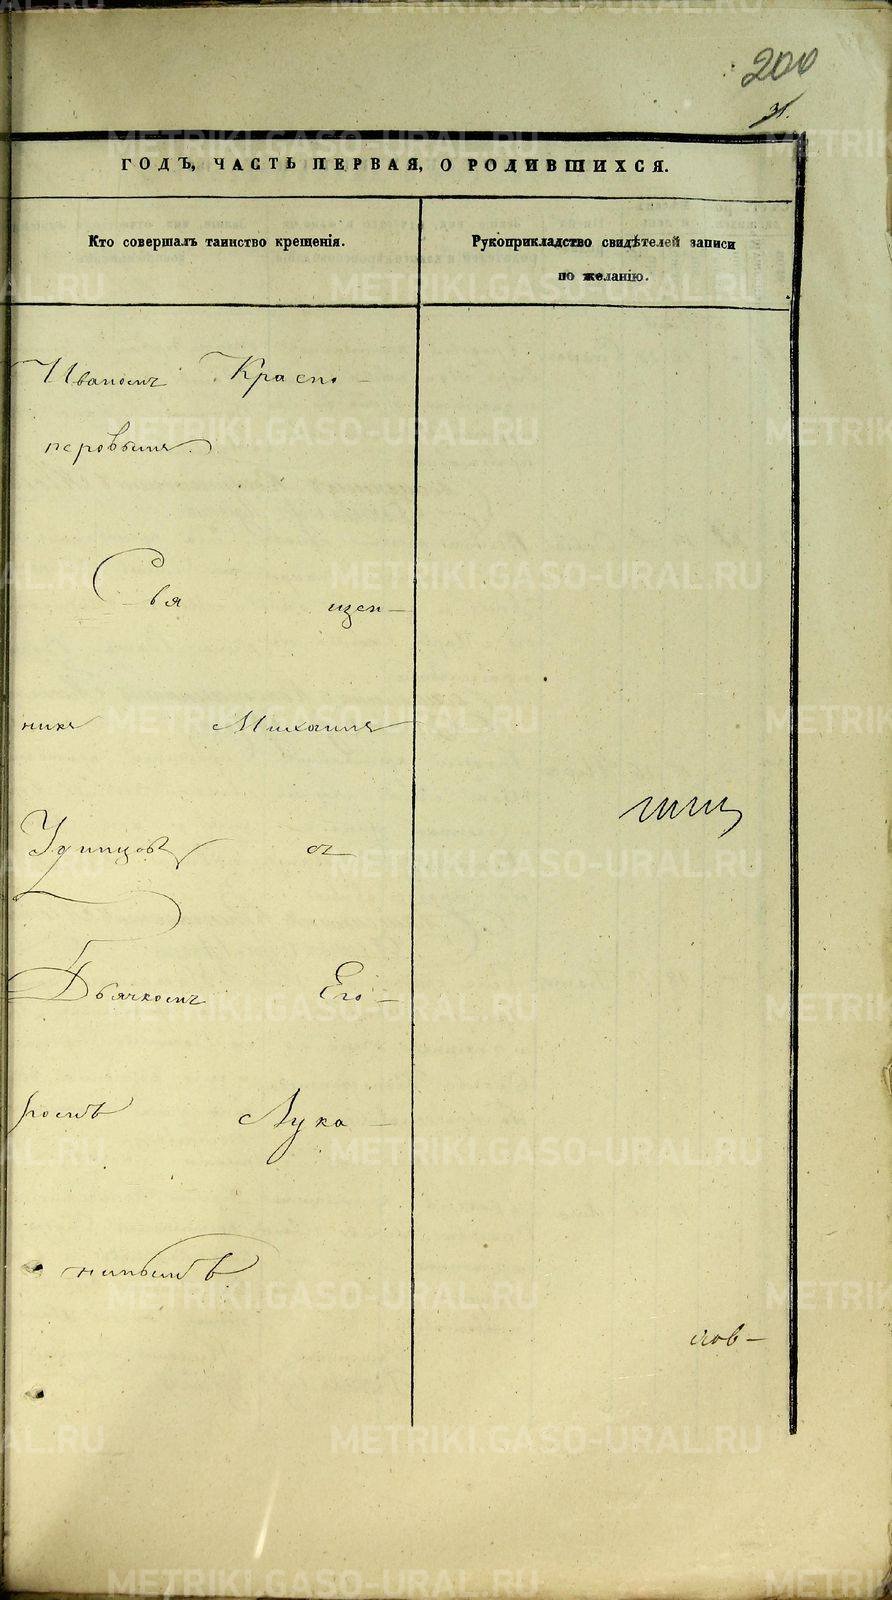 200
31.
ГОДЪ, ЧАСТЬ ПЕРВАЯ, О РОДИВШИХСЯ.
Кто совершалъ таинство крещенія.
Рукоприкладство свидѣтелей записи
по желанію.
Иваномъ Красно-
перовымъ.
Свя щен-
никъ Михаилъ
Удинцовъ съ
Дьячкомъ Его-
ромъ Лука-
нинымъ
METRIKI.GASO-URAL.RU